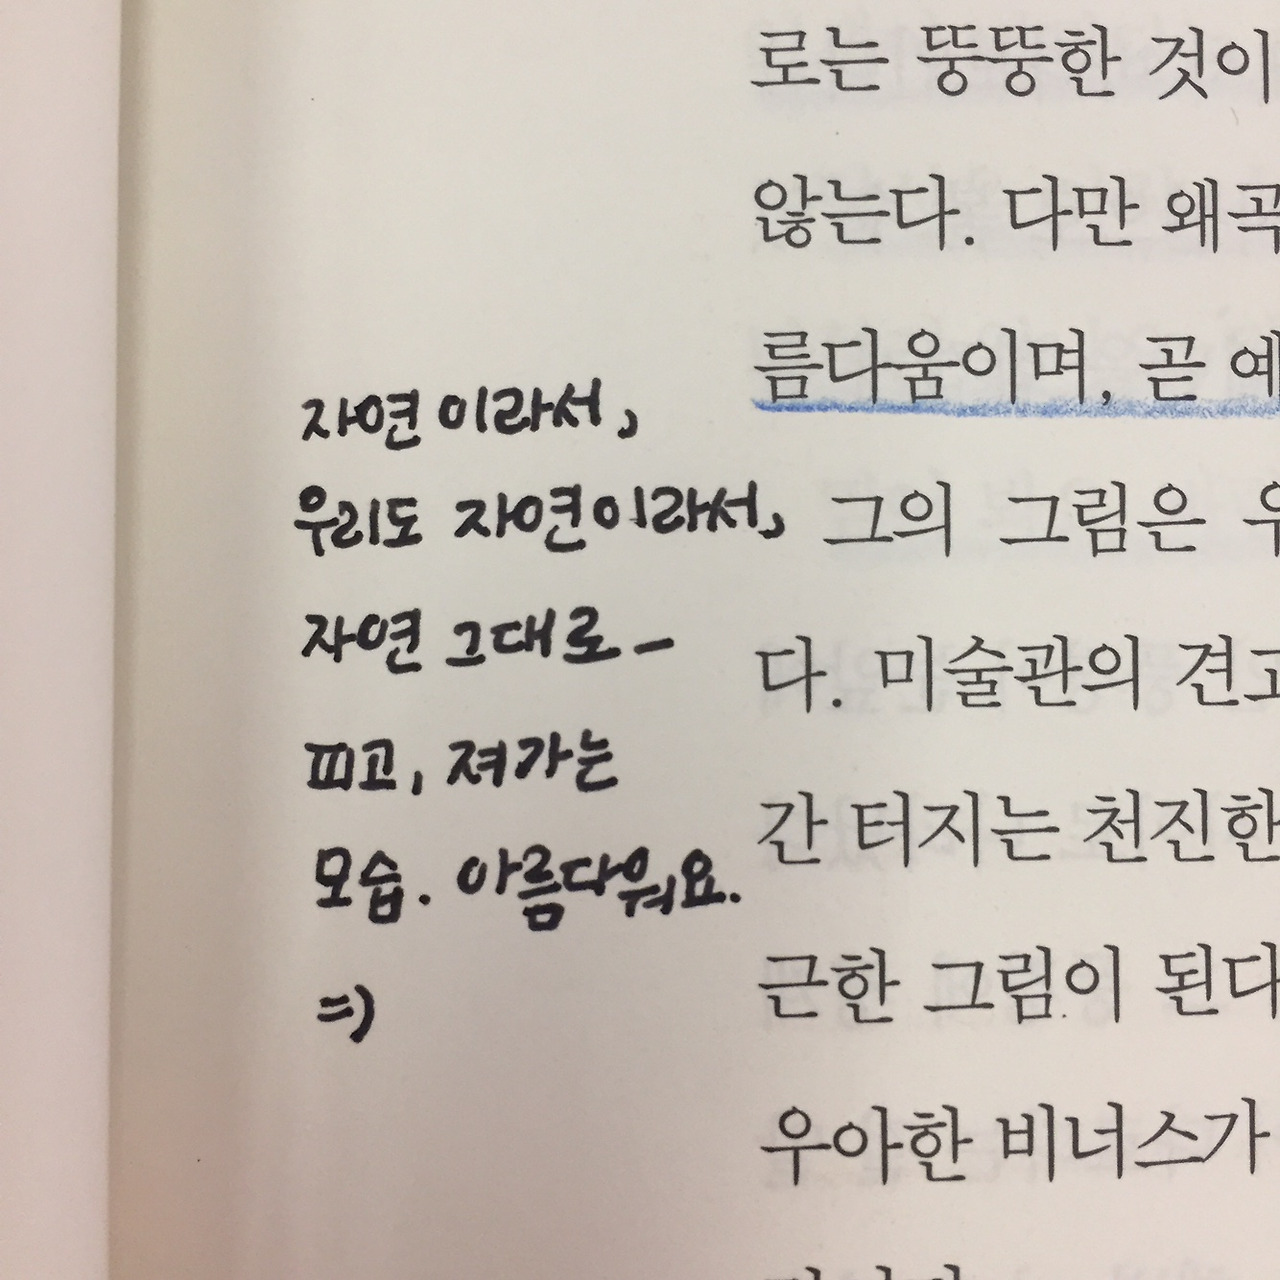 로는 뚱뚱한 것이
않는다. 다만 왜곡
름다움이며, 곧 예
그의 그림은
다. 미술관의 견고
간 터지는 천진한
근한 그림이 된다
우아한 비너스가
자연이라서,
우리도 자연이라서,
자연 그대로-
피고, 져가는
모습. 아름다워요.
=)